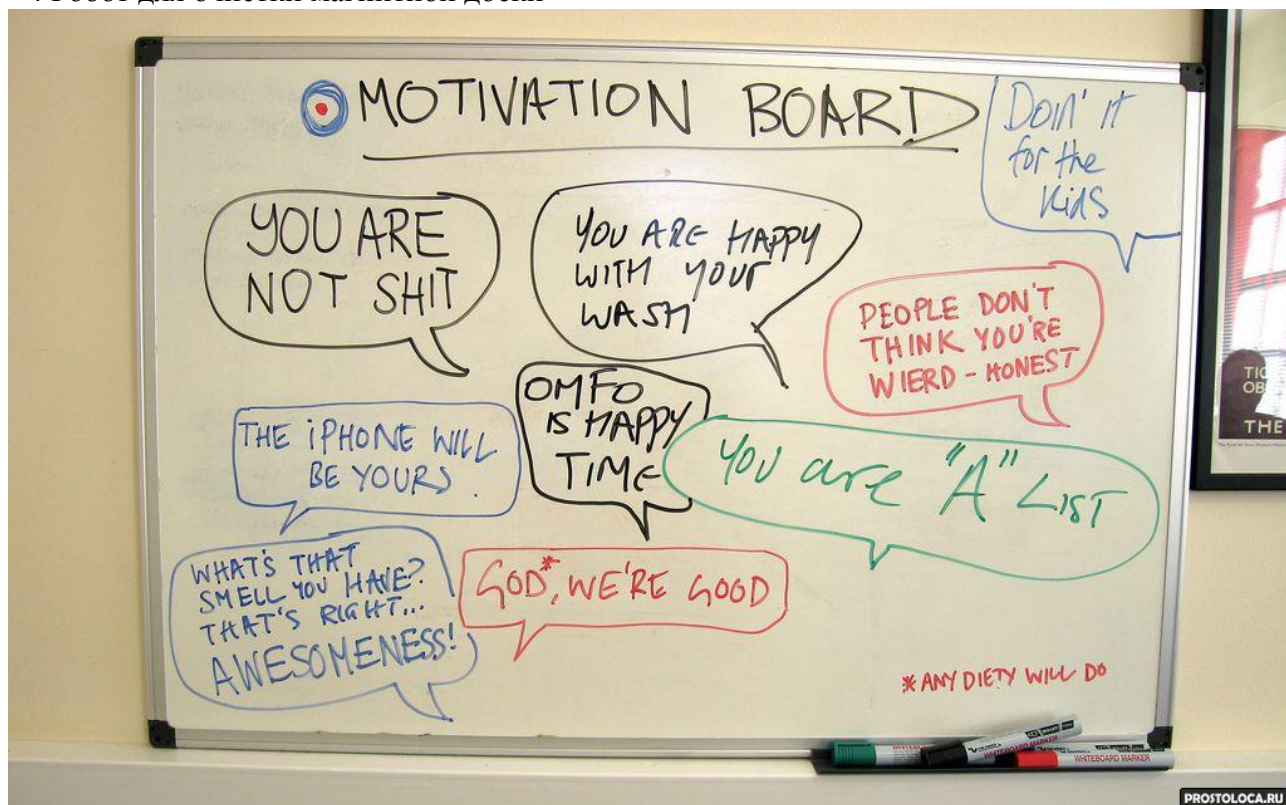 MOTIVATION BOARD
DOIN' IT
for the
KIDS
YOU ARE
NOT SHIT
YOU ARE HAPPY
WITH YOUR
WASH
PEOPLE DON'T
THINK YOU'RE
WIERD - HONEST
OMFO
IS HAPPY
TIME
THE iPHONE WILL
BE YOURS.
YOU are "A" LIST
WHAT'S THAT
SMELL YOU HAVE?
THAT'S RIGHT...
AWESOMENESS!
GOD*, WE'RE GOOD
* ANY DIETY WILL DO
THE
WHITEBOARD MARKER
PROSTOLOCA.RU